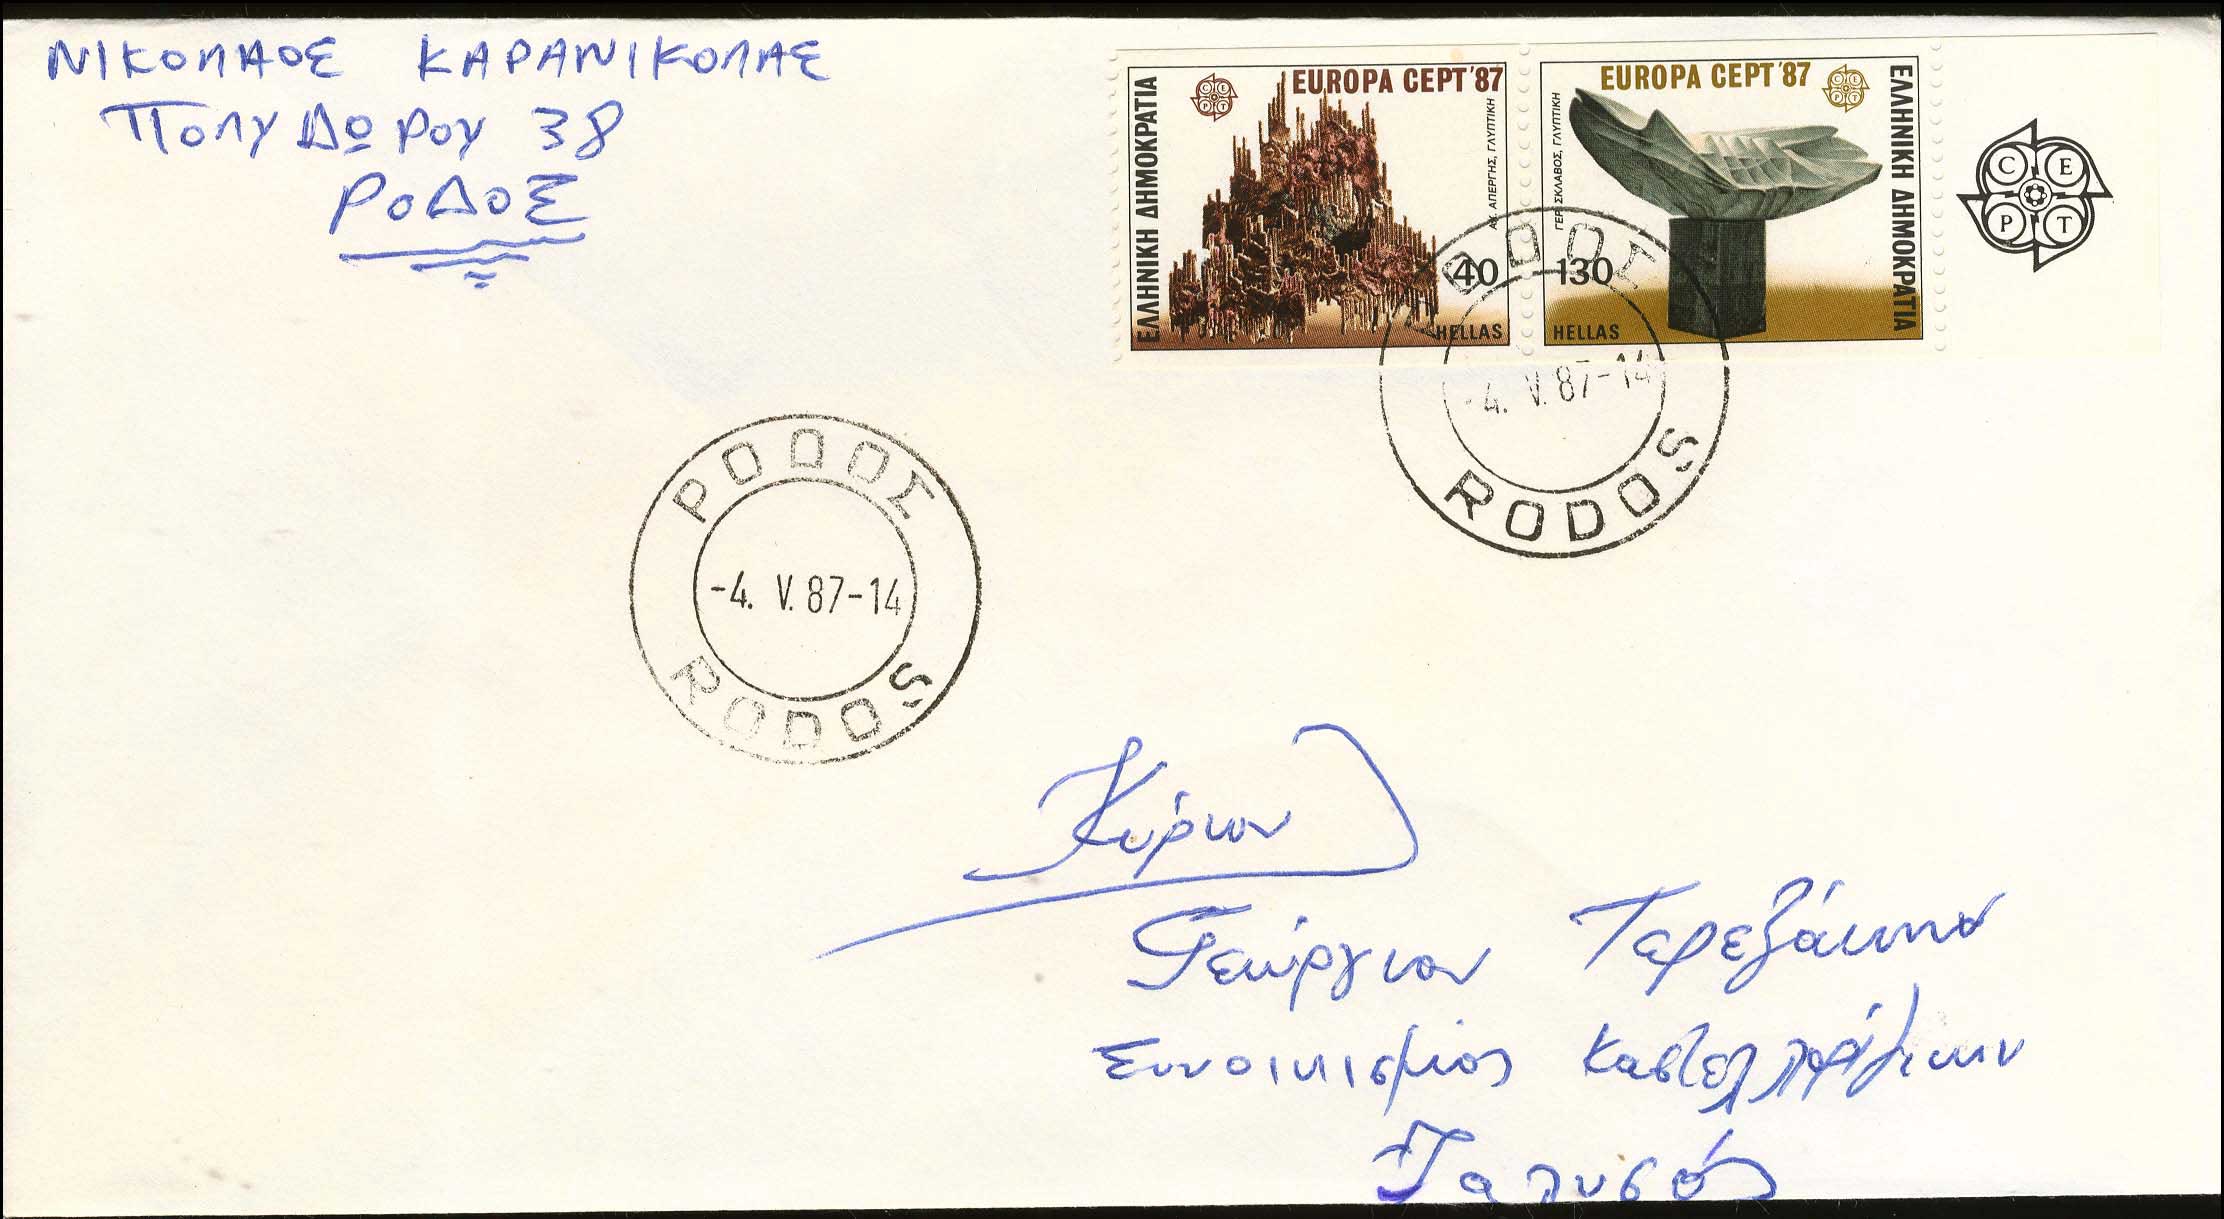 ΝΙΚΟΛΑΟΣ ΚΑΡΑΝΙΚΟΛΑΣ
ΠΟΛΥΔΩΡΟΥ 38
ΡΟΔΟΣ
ΕΛΛΗΝΙΚΗ ΔΗΜΟΚΡΑΤΙΑ
EUROPA CEPT '87
ΑΧ. ΑΠΕΡΓΗΣ, ΓΛΥΠΤΙΚΗ
40
HELLAS
EUROPA CEPT '87
ΓΕΡ. ΣΚΛΑΒΟΣ, ΓΛΥΠΤΙΚΗ
130
HELLAS
ΕΛΛΗΝΙΚΗ ΔΗΜΟΚΡΑΤΙΑ
CEPT
ΡΟΔΟΣ
-4. V. 87-14
RODOS
ΡΟΔΟΣ
-4. V. 87-14
RODOS
Κύριον
Γεώργιον Τερεζάκην
Συνοικισμός
Ιαλυσός